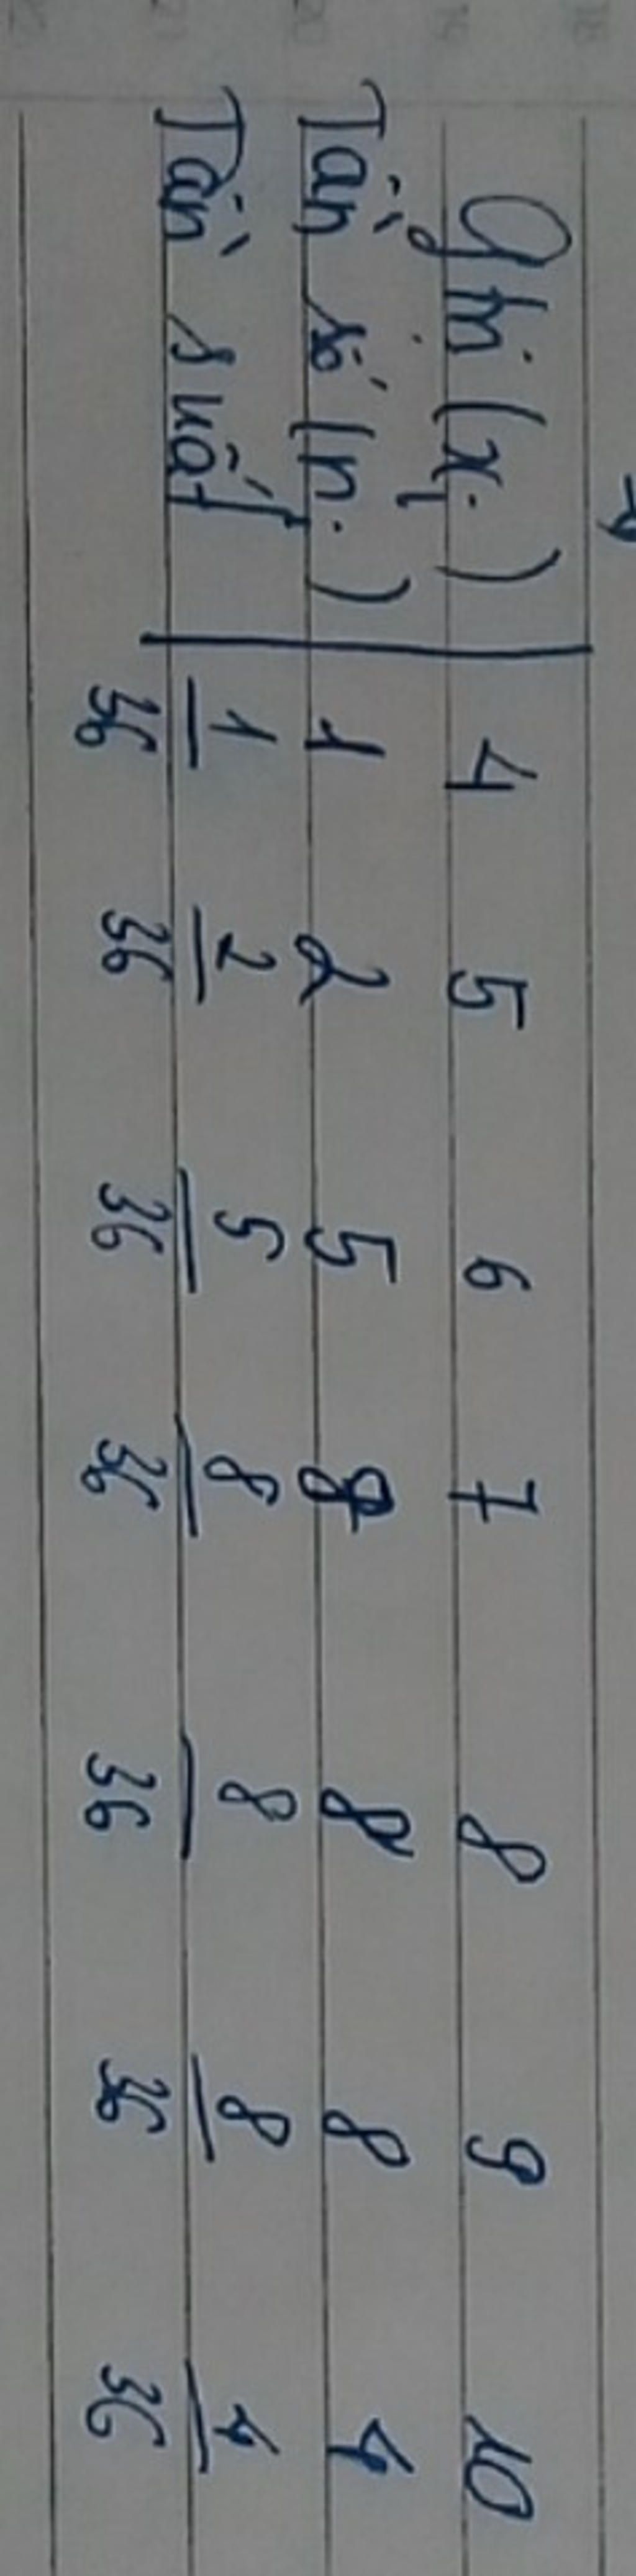 Ghi (xᵢ) 4 5 6 7 8 9 10
Tần số (nᵢ) 1 2 5 8 8 8 4
Tần suất 1/36 2/36 5/36 8/36 8/36 8/36 4/36